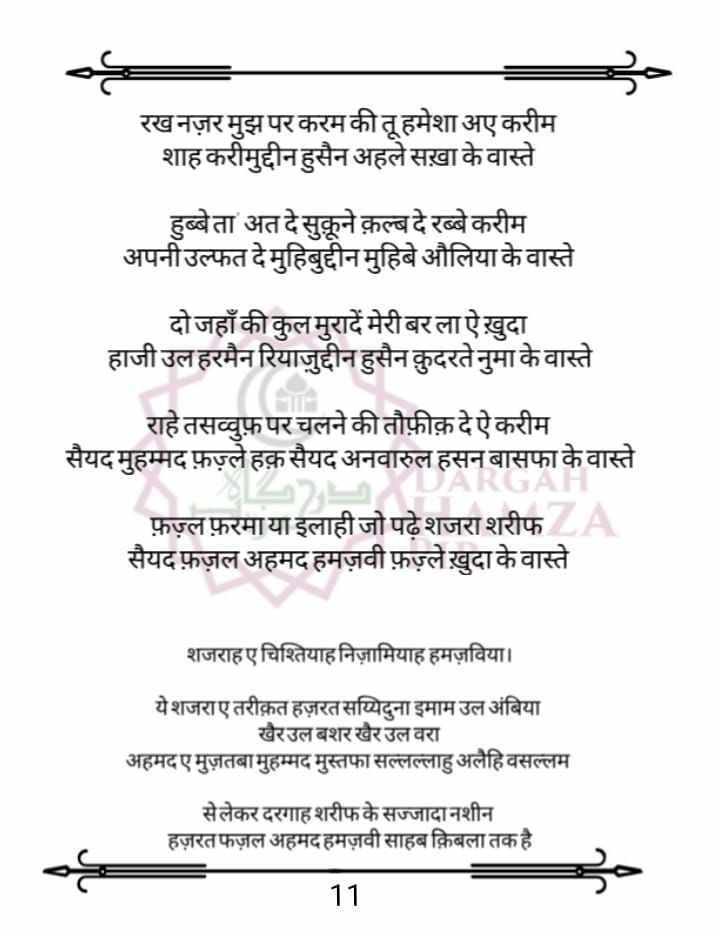 रख नज़र मुझ पर करम की तू हमेशा अए करीम
शाह करीमुद्दीन हुसैन अहले सख़ा के वास्ते
हुब्बे ता' अत दे सुकूने क़ल्ब दे रब्बे करीम
अपनी उल्फत दे मुहिबुद्दीन मुहिबे औलिया के वास्ते
दो जहाँ की कुल मुरादें मेरी बर ला ऐ ख़ुदा
हाजी उल हरमैन रियाज़ुद्दीन हुसैन क़ुदरते नुमा के वास्ते
राहे तसव्वुफ़ पर चलने की तौफ़ीक़ दे ऐ करीम
सैयद मुहम्मद फ़ज़्ले हक़ सैयद अनवारुल हसन बासफा के वास्ते
DARGAH
HAMZA
फ़ज़्ल फ़रमा या इलाही जो पढ़े शजरा शरीफ
सैयद फ़ज़ल अहमद हमज़वी फ़ज़्ले ख़ुदा के वास्ते
शजराह ए चिश्तियाह निज़ामियाह हमज़विया।
ये शजरा ए तरीक़त हज़रत सय्यिदुना इमाम उल अंबिया
खैर उल बशर खैर उल वरा
अहमद ए मुज़तबा मुहम्मद मुस्तफा सल्लल्लाहु अलैहि वसल्लम
से लेकर दरगाह शरीफ के सज्जादा नशीन
हज़रत फज़ल अहमद हमज़वी साहब क़िबला तक है
11